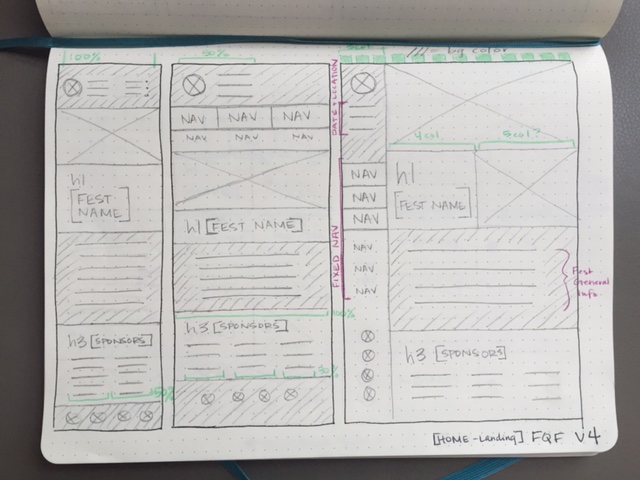 100%
h1
[FEST
NAME]
h3 [SPONSORS]
50%
50%
NAV NAV NAV
NAV NAV NAV
h1 [FEST NAME]
100%
h3 [SPONSORS]
30%
= bg color
DATE + LOCATION
4col 5col?
NAV
NAV
NAV
FIXED NAV
NAV
NAV
NAV
h1
[FEST NAME]
Fest
General
Info.
h3 [SPONSORS]
[HOME-Landing] FQF V4